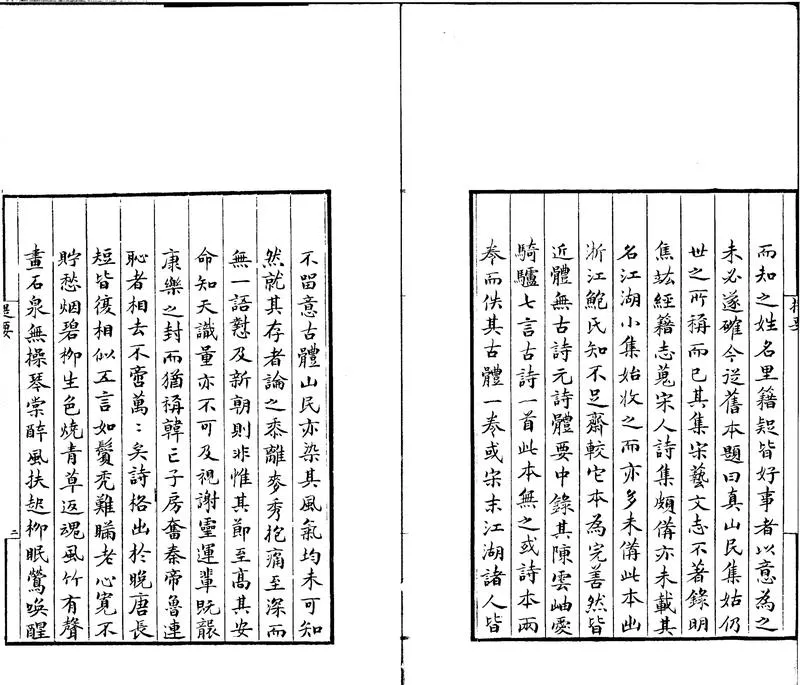 而知之姓名里籍疑皆好事者以意為之
未必遂確今從舊本題曰真山民集姑仍
世之所稱而已其集宋藝文志不著錄明
焦竑經籍志蒐宋人詩集頗備亦未載其
名江湖小集始收之而亦多未備此本出
浙江鮑氏知不足齋較它本為完善然皆
近體無古詩元詩體要中錄其陳雲岫愛
騎驢七言古詩一首此本無之或詩本兩
卷而佚其古體一卷或宋末江湖諸人皆
提要
不留意古體山民亦染其風氣均未可知
然就其存者論之黍離麥秀抱痛至深而
無一語懟及新朝則非惟其節至髙其安
命知天識量亦不可及視謝靈運輩既襲
康樂之封而猶稱韓亡子房奮秦帝魯連
恥者相去不啻萬萬矣詩格出於晚唐長
短皆復相似五言如鬢禿難瞞老心寬不
貯愁烟碧柳生色燒青草返魂風竹有聲
畫石泉無操琴棠醉風扶起柳眠鶯喚醒
提要
二